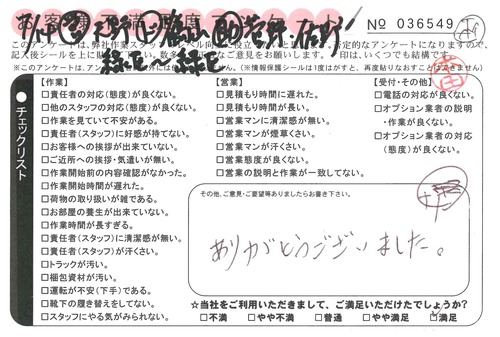 No 036549
このアンケートは、弊社作業スタッフ
※このアンケートは
チェックリスト
【作業】
□責任者の対応(態度)が良くない。
□他のスタッフの対応(態度)が良くない。
□作業を見ていて不安がある。
□責任者(スタッフ)に好感が持てない。
□お客様への挨拶が出来ていない。
□ご近所への挨拶・気遣いが無い。
□作業開始前の内容確認がなかった。
□作業開始時間が遅れた。
□荷物の取り扱いが雑である。
□お部屋の養生が出来ていない。
□作業時間が長すぎる。
□責任者(スタッフ)に清潔感が無い。
□責任者(スタッフ)が汗くさい。
□トラックが汚い。
□梱包資材が汚い。
□運転が不安(下手)である。
□靴下の履き替えをしてない。
□スタッフにやる気がみられない。
【営業】
□見積もり時間に遅れた。
□見積もり時間が長い。
□営業マンに清潔感が無い。
□営業マンが煙草くさい。
□営業マンが汗くさい。
□営業態度が良くない。
□営業の説明と作業が一致してない。
【受付・その他】
□電話の対応が良くない。
□オプション業者の説明
・作業が良くない。
□オプション業者の対応
(態度)が良くない。
その他、ご意見・ご要望等ありましたらお書き下さい。
ありがとうございました。
☆当社をご利用いただきまして、ご満足いただけたでしょうか?
□不満 □やや不満 □普通 □やや満足 □満足